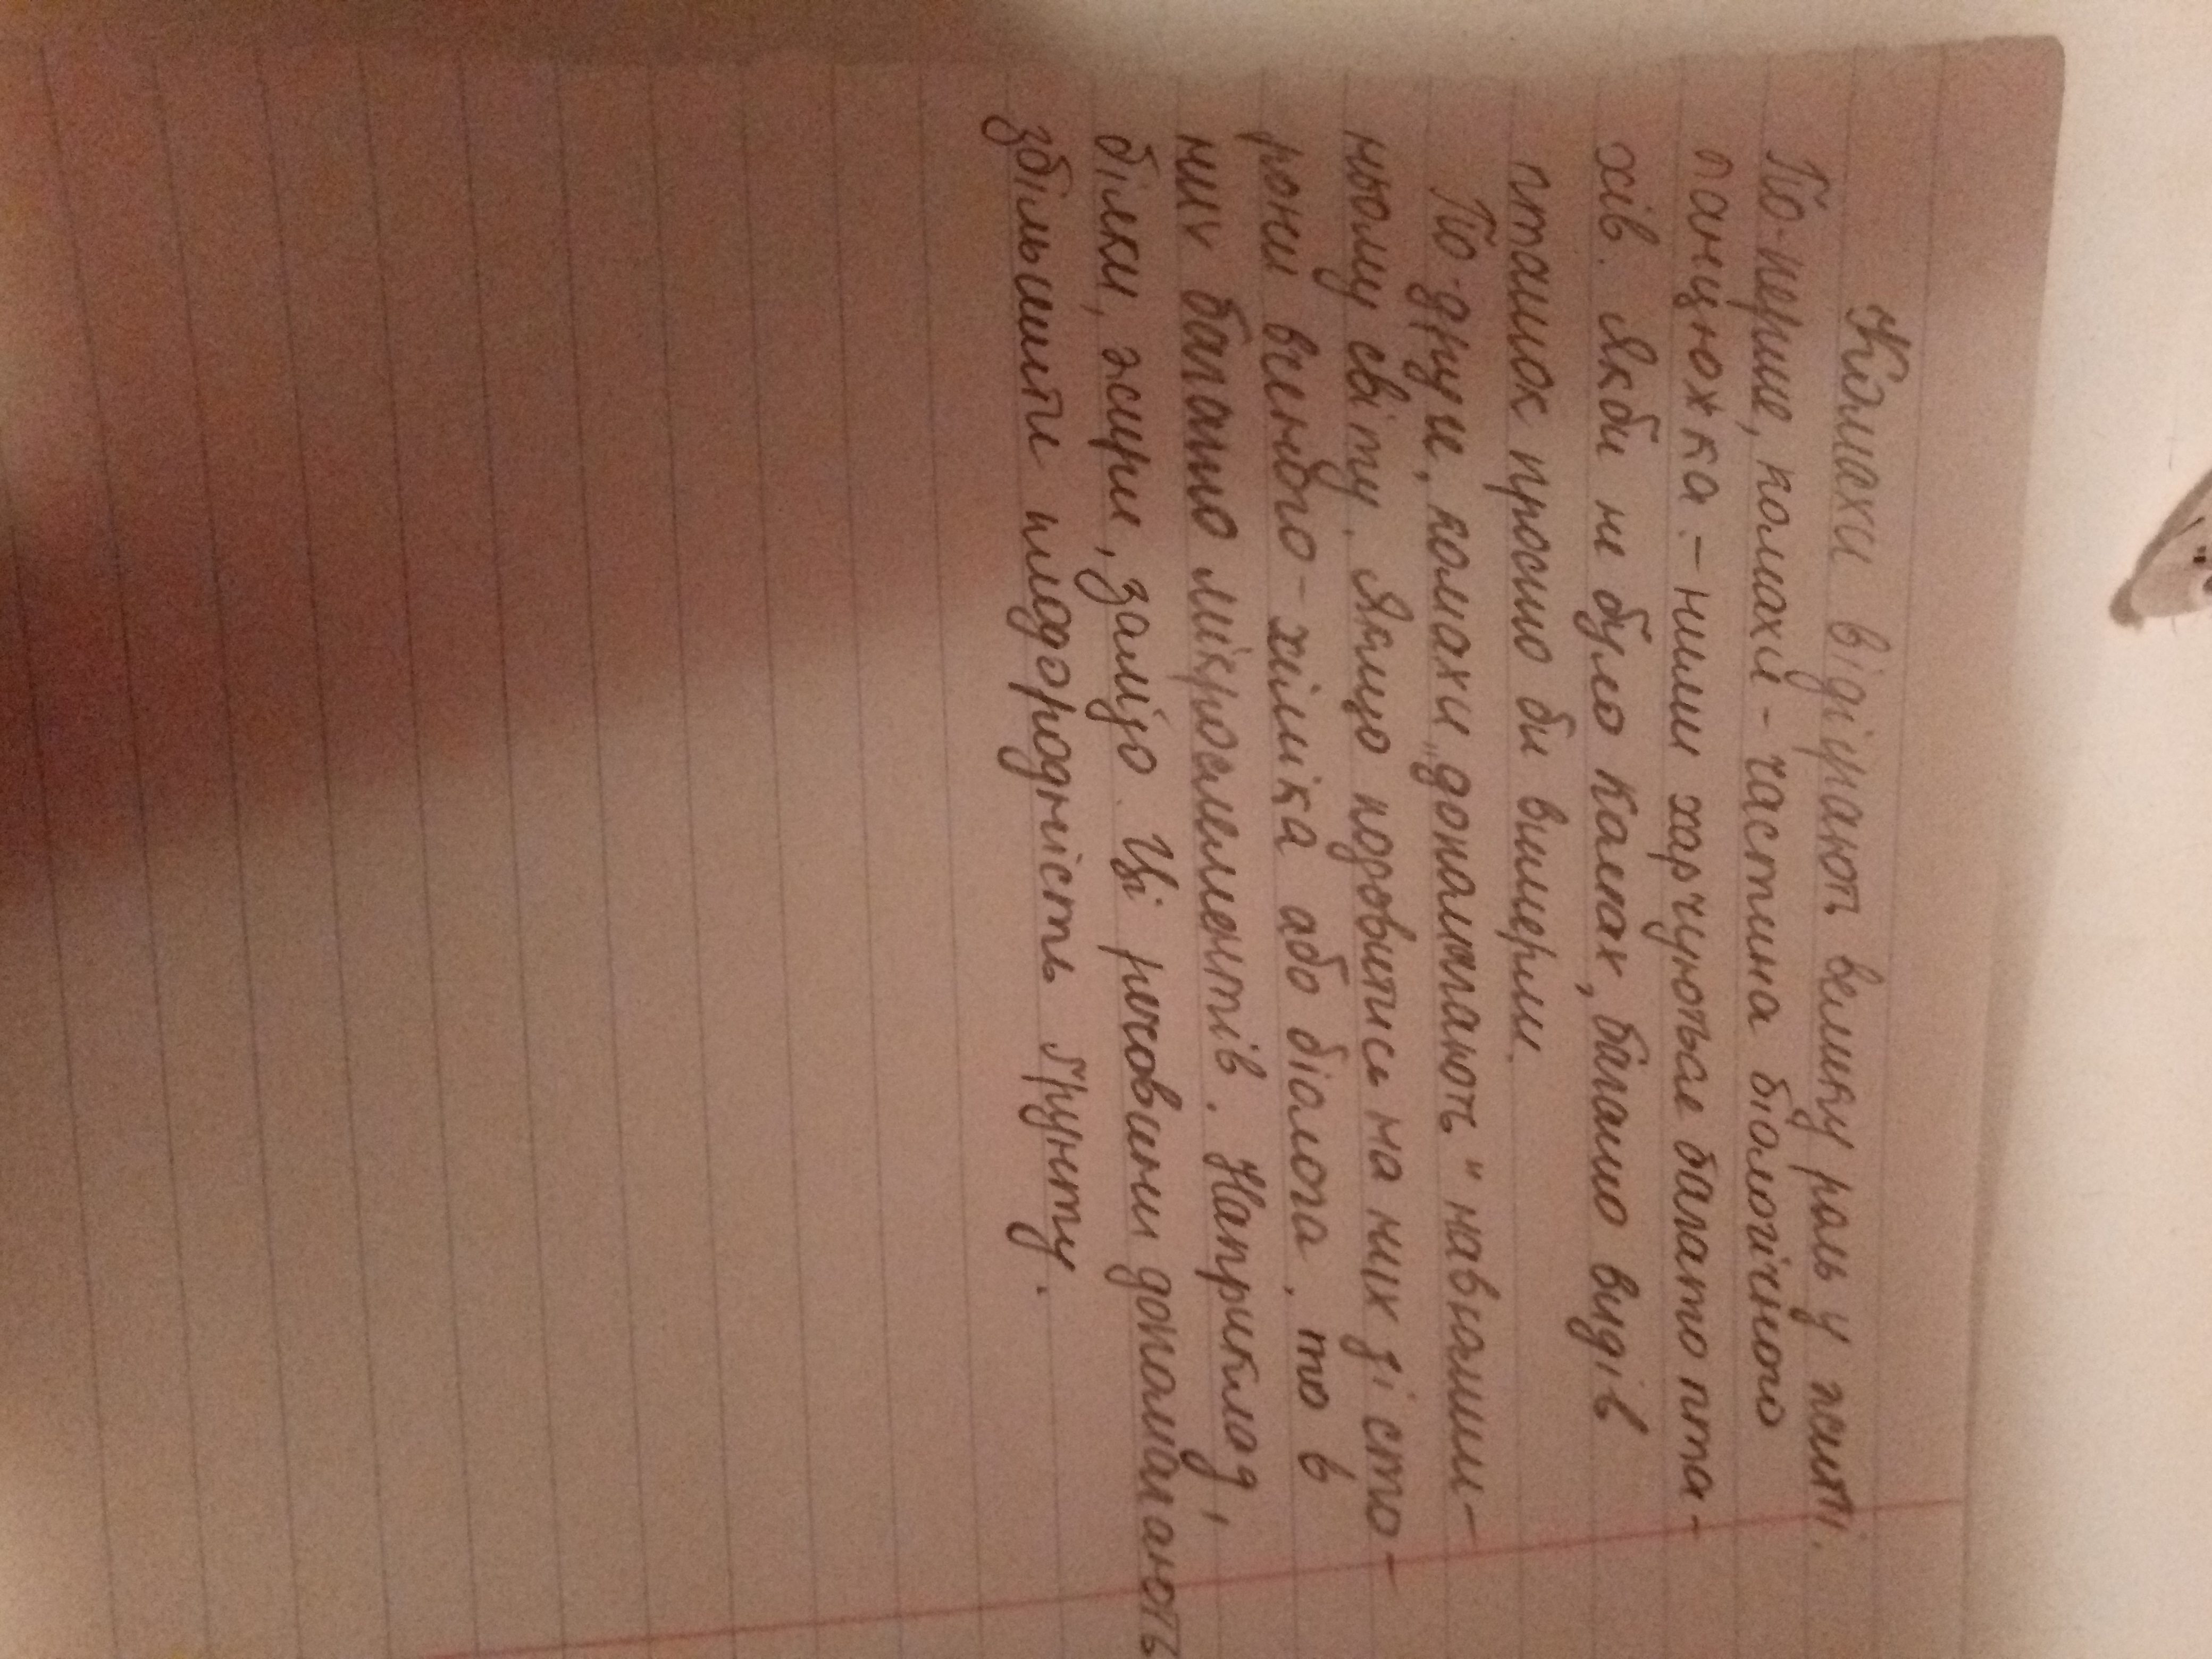 Комахи відіграють велику роль у житті.
По-перше, комахи - частина біологічного
ланцюжка - ними харчуються багато пта-
хів. Якби не було комах, багато видів
пташок просто би вимерли.
По-друге, комахи „допомагають" навколиш-
ньому світу. Якщо подивитись на них зі сто-
рони вченого - хіміка або біолога, то в
них багато мікроелементів. Наприклад,
білки, жири, залізо. Ці речовини допомагають
збільшити плодородність ґрунту.